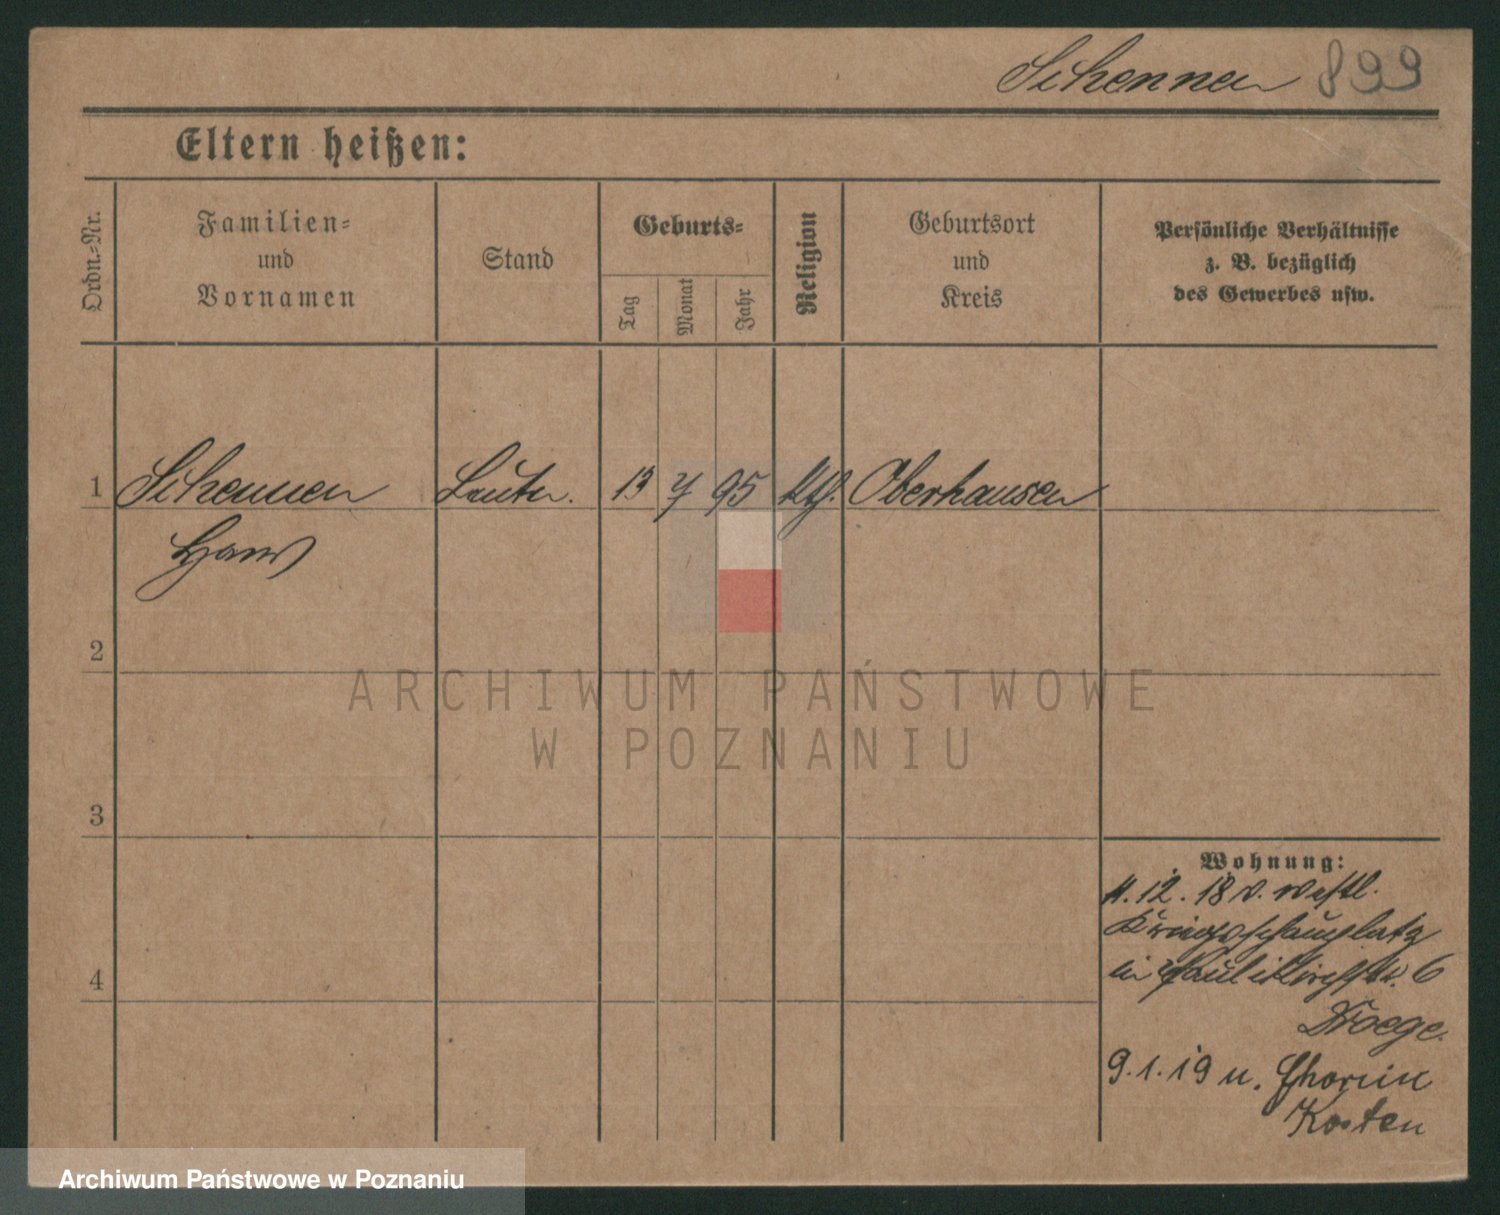 Schennen 899
Eltern heißen:
Ordn.-Nr.
Familien-
und
Vornamen
Stand
Geburts-
Tag
Monat
Jahr
Religion
Geburtsort
und
Kreis
Persönliche Verhältnisse
z. B. bezüglich
des Gewerbes usw.
1 Schennen Leutn. 13 7 95 kth. Oberhausen
Hans
2
3
4
Wohnung:
4.12.18 v. westl.
Kriegsschauplatz
in Paulikirchstr. 6
Droege.
9.1.19 n.
Kosten
ARCHIWUM PAŃSTWOWE
W POZNANIU
Archiwum Państwowe w Poznaniu